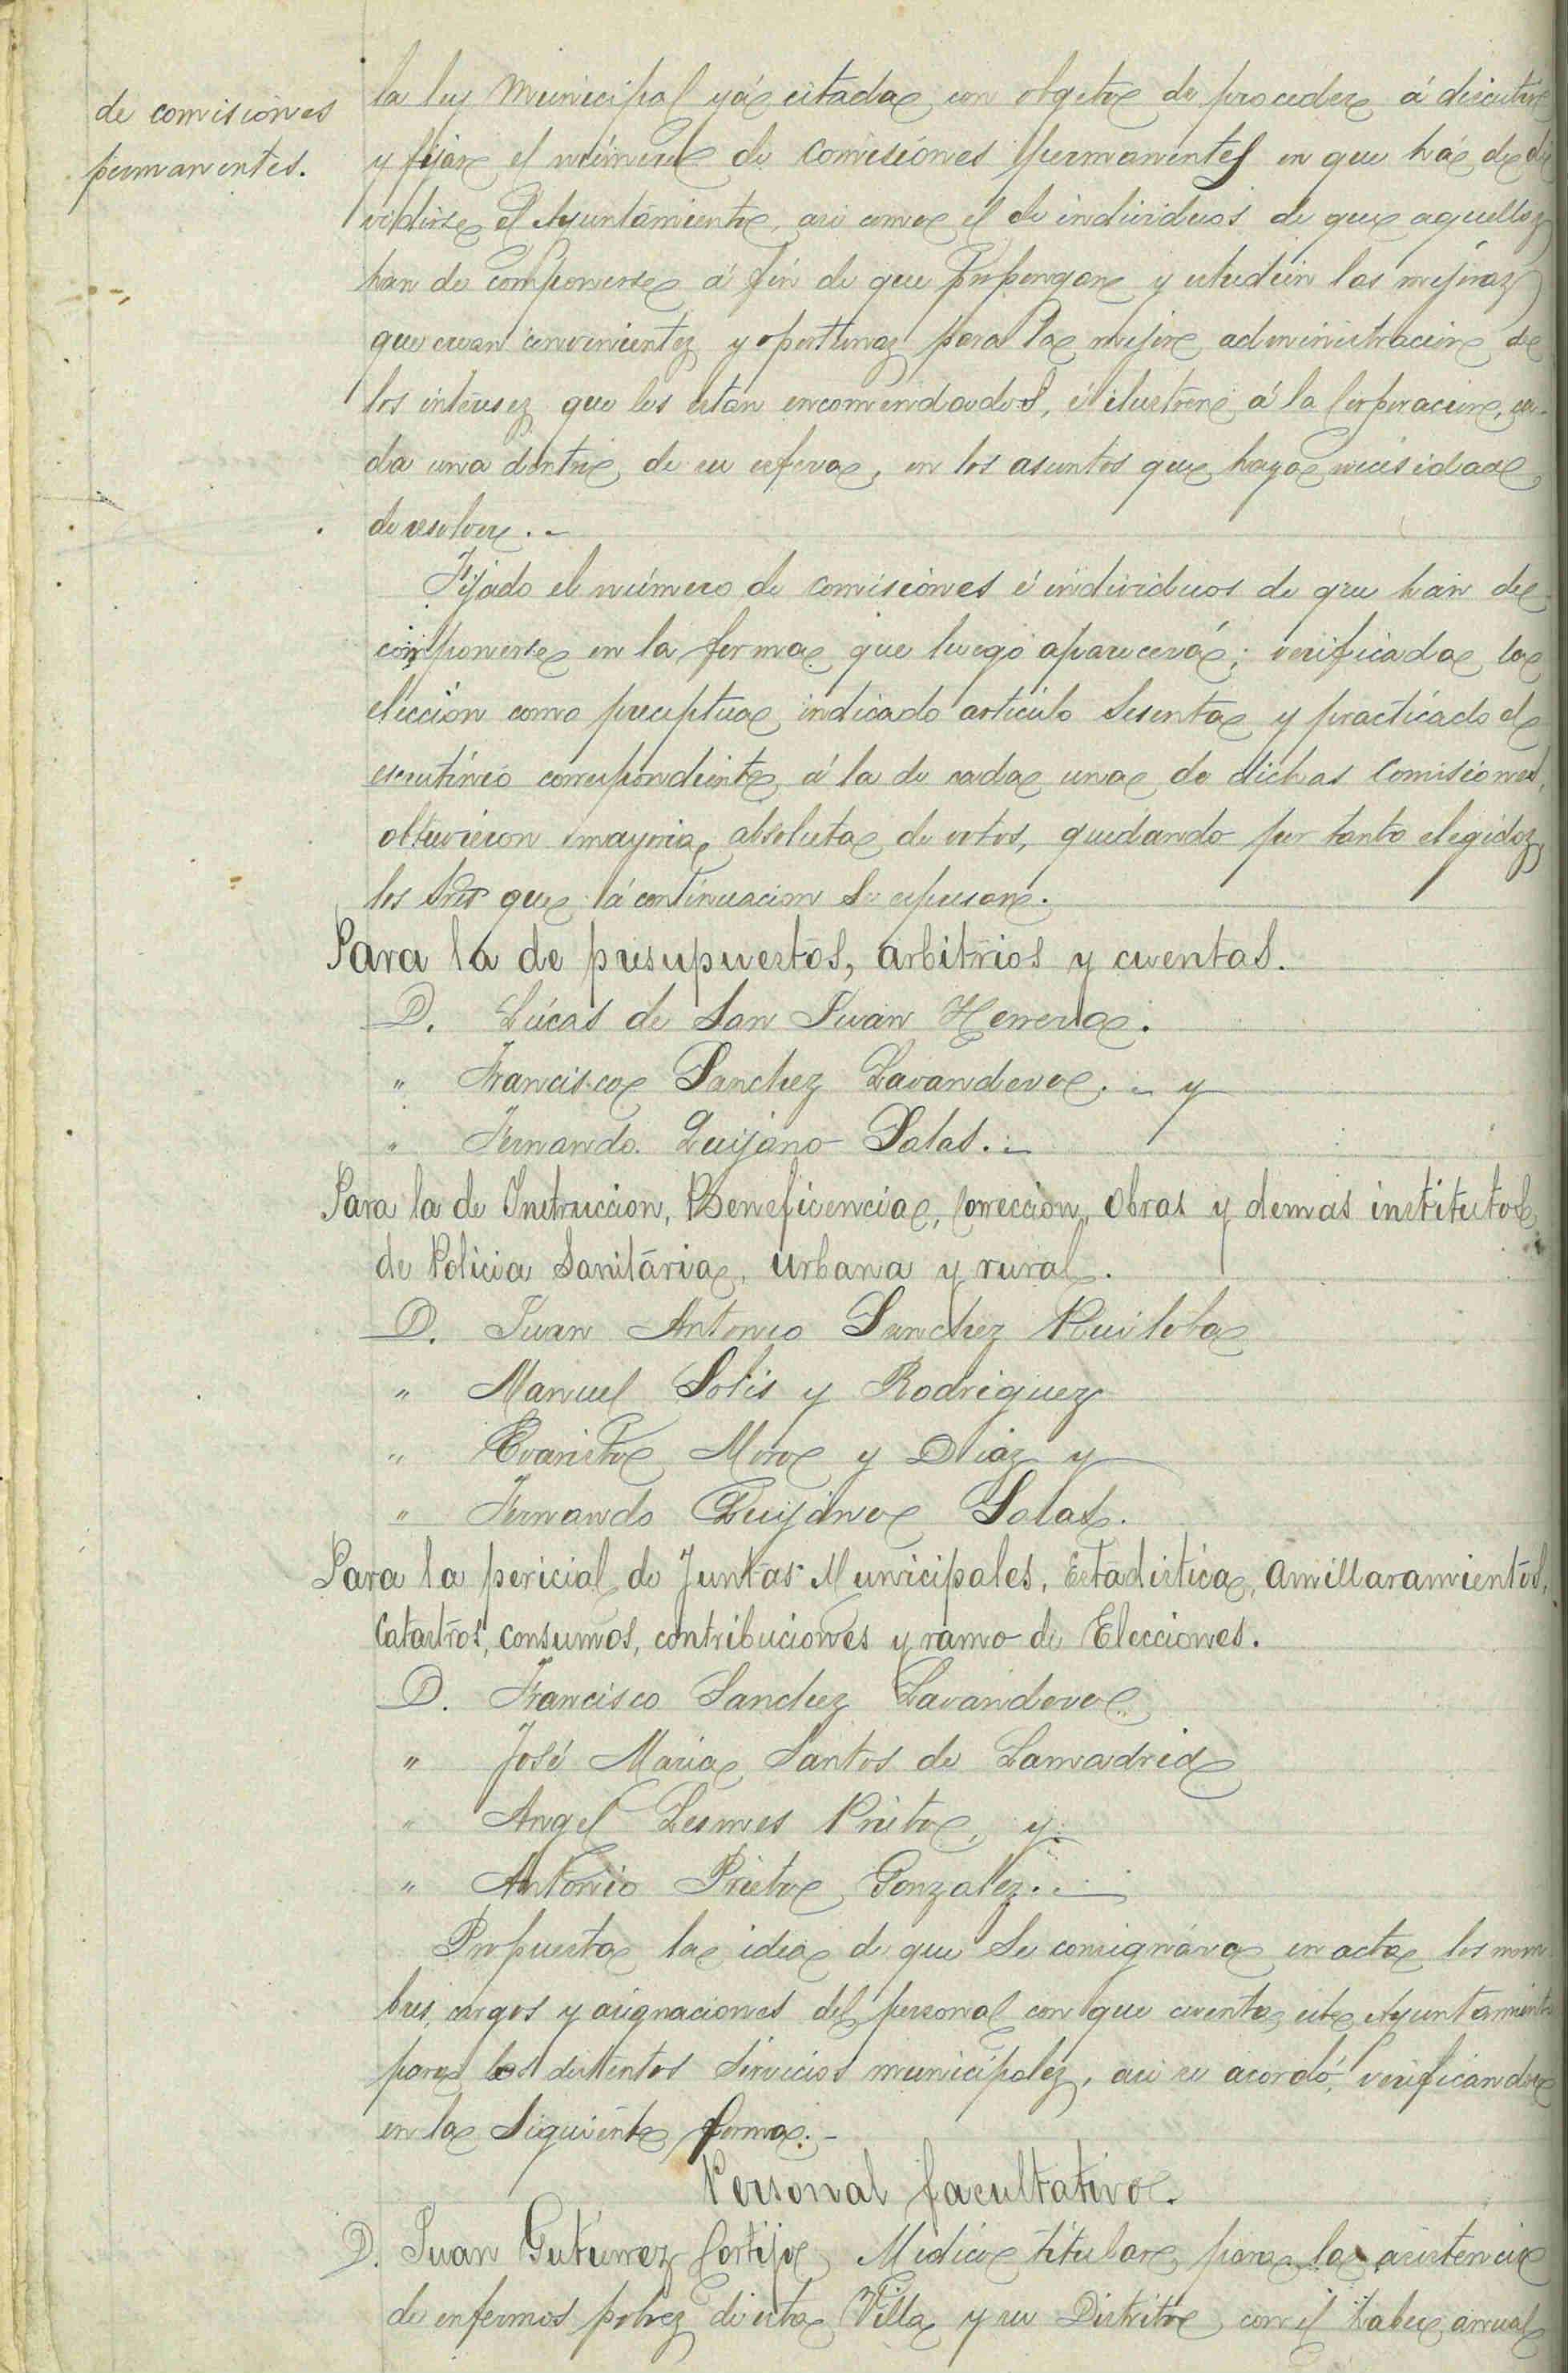 de comisiones
permanentes.
la ley Municipal yá citada, con objeto de proceder á discutir
y fijar el número de comisiones permanentes en que há de di
vidirse el Ayuntamiento, asi como el de individuos de que aquellas
han de componerse á fin de que propongan y estudien las mejoras
que crean convenientes y oportunas para la mejor administracion de
los intereses que les estan encomendados, é ilustren á la Corporacion, ca-
da una dentro de su esfera, en los asuntos que haya necesidad
de resolver.-
Fijado el número de comisiones é individuos de que han de
componerse en la forma que luego aparecerá; verificada la
elección como preceptua indicado artículo sesenta y practicado el
escrutinio correspondiente á la de cada una de dichas comisiones,
obtuvieron mayoria absoluta de votos, quedando por tanto elegidos
los Sres que á continuacion se espresan.
Para la de presupuestos, arbitrios y cuentas.
D. Lúcas de San Juan Herrera.
" Francisco Sanchez Lavandero.- y
" Fernando Quijano Salas.-
Para la de Instruccion, Beneficencia, Correccion, Obras y demas institutos
de Policia Sanitária, urbana y rural.
D. Juan Antonio Sanchez Ruiloba
" Manuel Solis y Rodriguez
" Evaristo Moro y Diaz y
" Fernando Quijano Salas.
Para la pericial de Juntas Municipales, Estadistica, Amillaramientos,
Catastros, consumos, contribuciones y ramo de Elecciones.
D. Francisco Sanchez Lavandero
" José Maria Santos de Lamadrid
" Angel Lesmes Prieto, y
" Antonio Prieto Gonzalez.-
Propuesta la idea de que se consignára en acta los nom
bres, cargos y asignaciones del personal con que cuenta este Ayuntamiento
para los distintos servicios municipales, asi se acordó, verificandose
en la siguiente forma.-
Personal facultativo.
D. Juan Gutierrez Cortijo, Médico titular para la asistencia
de enfermos pobres de esta Villa y su Distrito con el haber anual